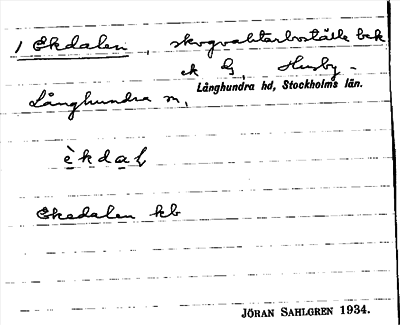 1 Ekdalen, skogvaktarboställe bek
ek G, Husby-
Långhundra hd, Stockholms län.
Långhundra sn,
èkdal
Ekedalen kb
JÖRAN SAHLGREN 1934.